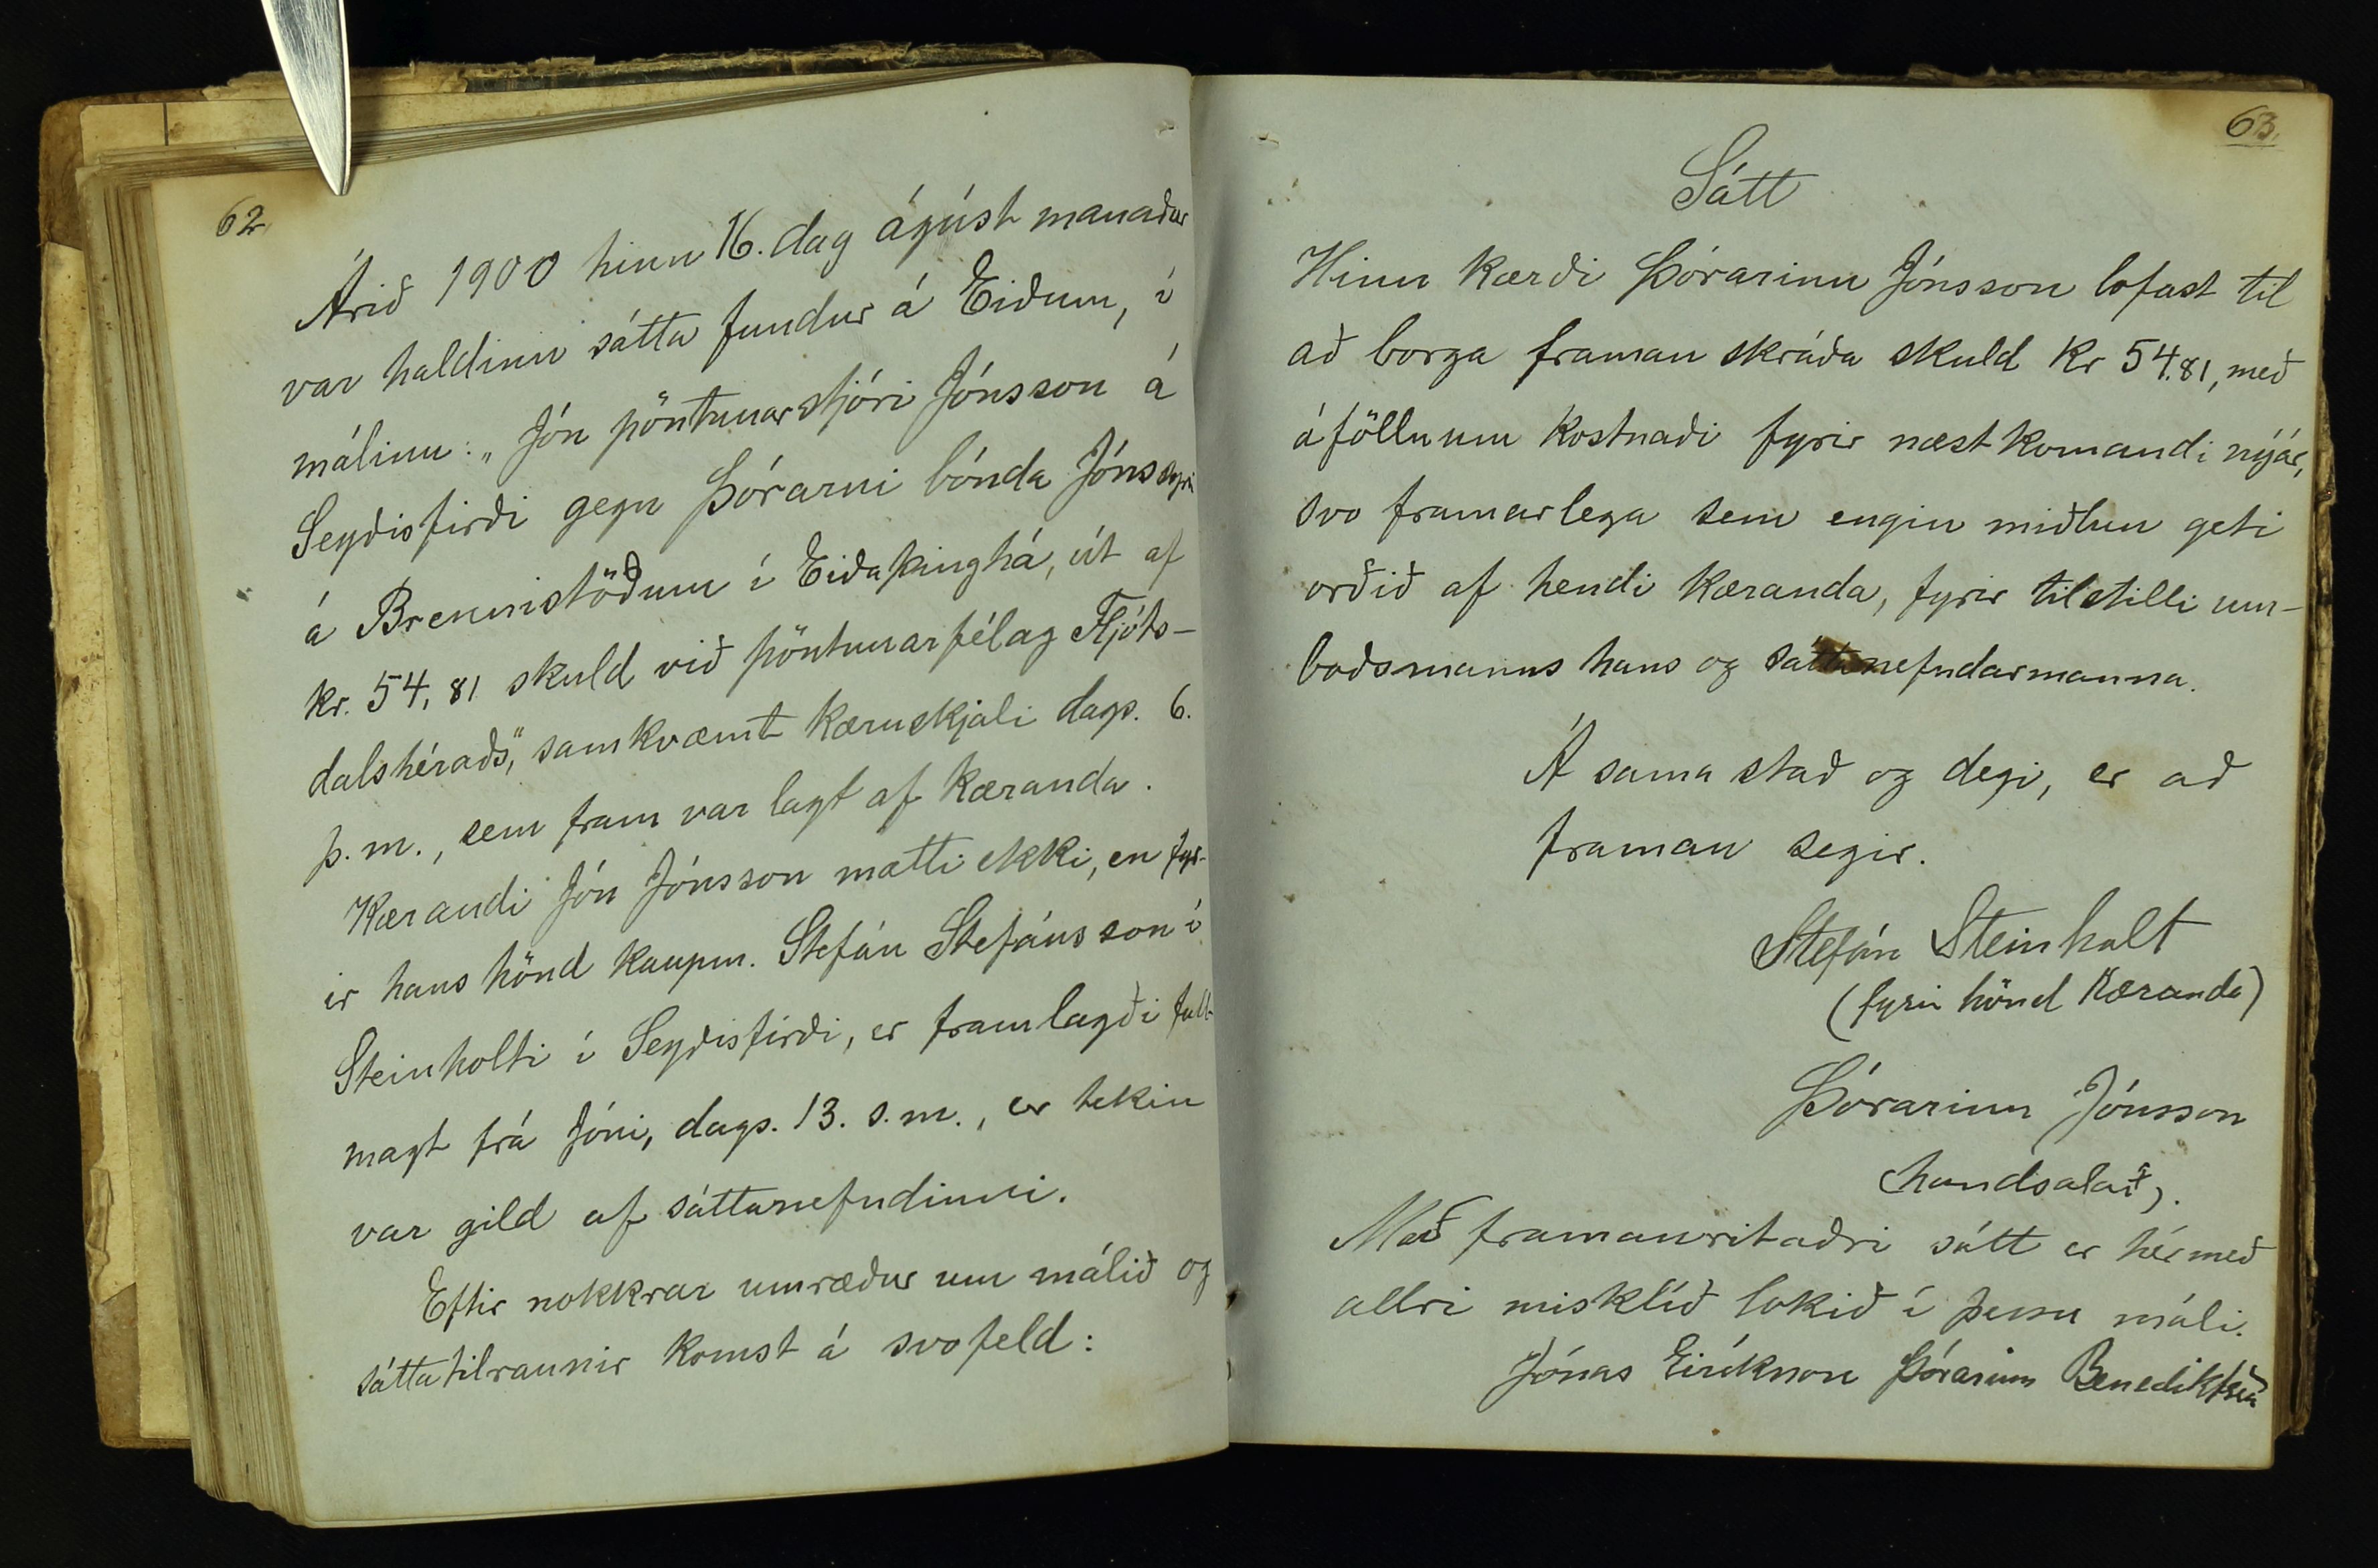 62.
Árið 1900 hinn 16. dag ágúst manaðar
var haldinn sátta fundur á Eiðum, í
málinu: „Jón pöntunarstjóri Jónsson á
Seyðisfirði gegn Þórarni bónda Jónssyni
á Brennistöðum í Eiðaþinghá, út af
kr. 54,81 skuld við pöntunarfélag Fljóts-
dalshéraðs," samkvæmt kæruskjali dags. 6.
þ.m., sem fram var lagt af kæranda.
Kærandi Jón Jónsson mætti ekki, en fyr-
ir hans hönd kaupm. Stefán Stefánsson í
Steinholti í Seyðisfirði, er framlagði full-
magt frá Jóni, dags. 13. s.m., er tekin
var gild af sáttanefndinni.
Eftir nokkrar umræður um málið og
sáttatilraunir komst á svofeld:
63.
Sátt
Hinn kærði Þórarinn Jónsson lofast til
að borga framan skráða skuld kr 54.81, með
áföllnum kostnaði fyrir næstkomandi nýár,
svo framarlega sem engin miðlun geti
orðið af hendi kæranda, fyrir tilstilli um-
boðsmanns hans og sáttanefndarmanna.
Á sama stað og degi, er að
framan segir.
Stefán Steinholt
(fyrir hönd kæranda)
Þórarinn Jónsson
(handsalað).
Með framanritaðri sátt er hér með
allri misklíð lokið í þessu máli.
Jónas Eiríksson Þórarinn Benediktsson